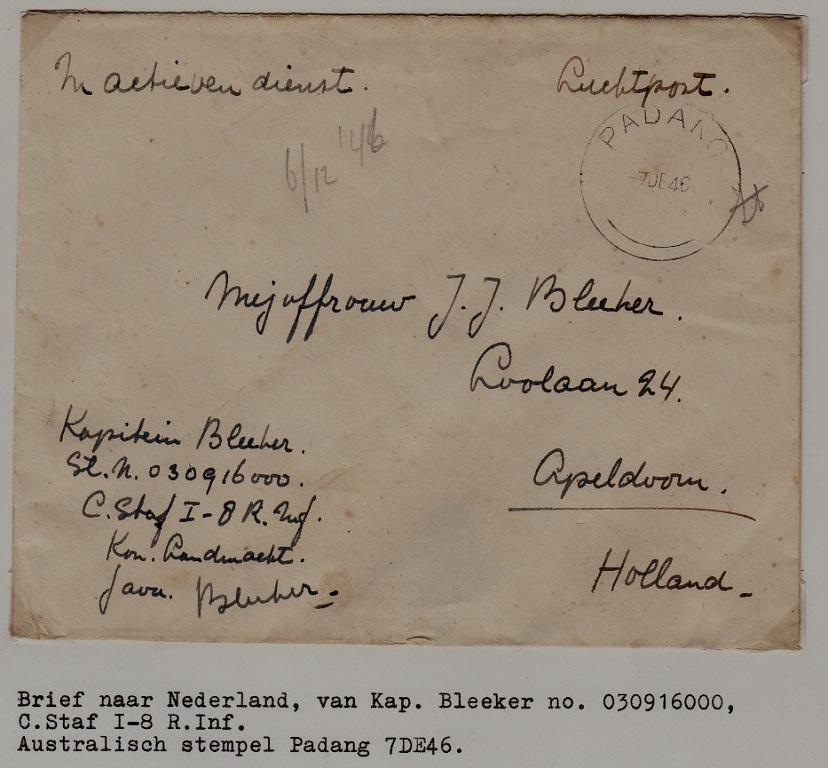 In actieven dienst.
Luchtpost.
PADANG
-7DE46
6/12 '46
Mejuffrouw J. J. Bleeker.
Loolaan 24.
Apeldoorn.
Holland-
Kapitein Bleeker.
St. N. 030916000.
C. Staf I-8 R. Inf.
Kon. Landmacht.
Java. Bleeker-
Brief naar Nederland, van Kap. Bleeker no. 030916000,
C.Staf I-8 R.Inf.
Australisch stempel Padang 7DE46.